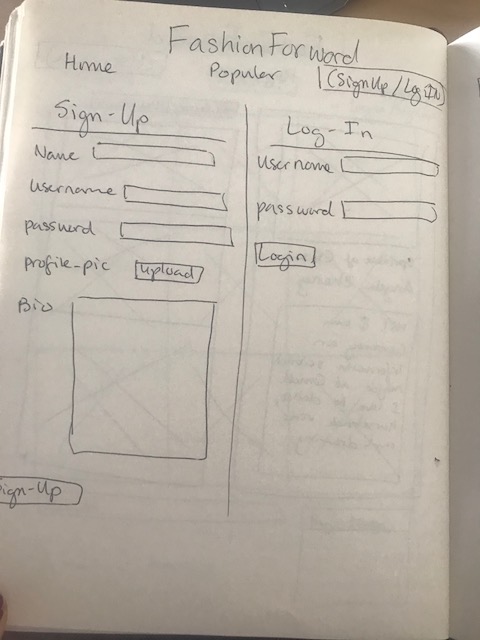 FashionForward
Home Popular (SignUp/LogIN)
Sign-Up
Name
Username
password
profile-pic upload
Bio
Sign-Up
Log-In
Username
password
Login